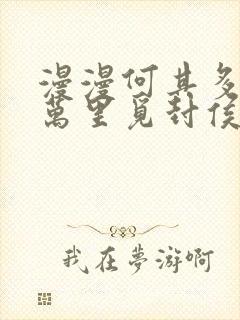 漫漫何其多
萬里覓封侯
我在夢游啊